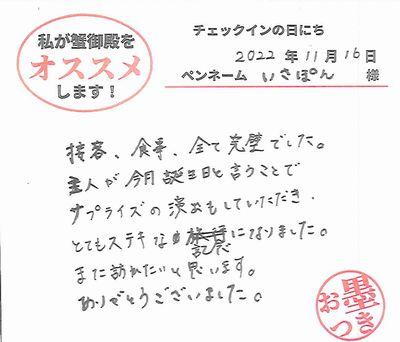 私が蟹御殿を
オススメ
します！
チェックインの日にち
2022年 11月 16日
ペンネーム いさぽん 様
接客、食事、全て完璧でした。
主人が今月誕生日と言うことで
サプライズの演出もしていただき
とてもステキな記念になりました。
また訪れたいと思います。
ありがとうございました。
お墨つき